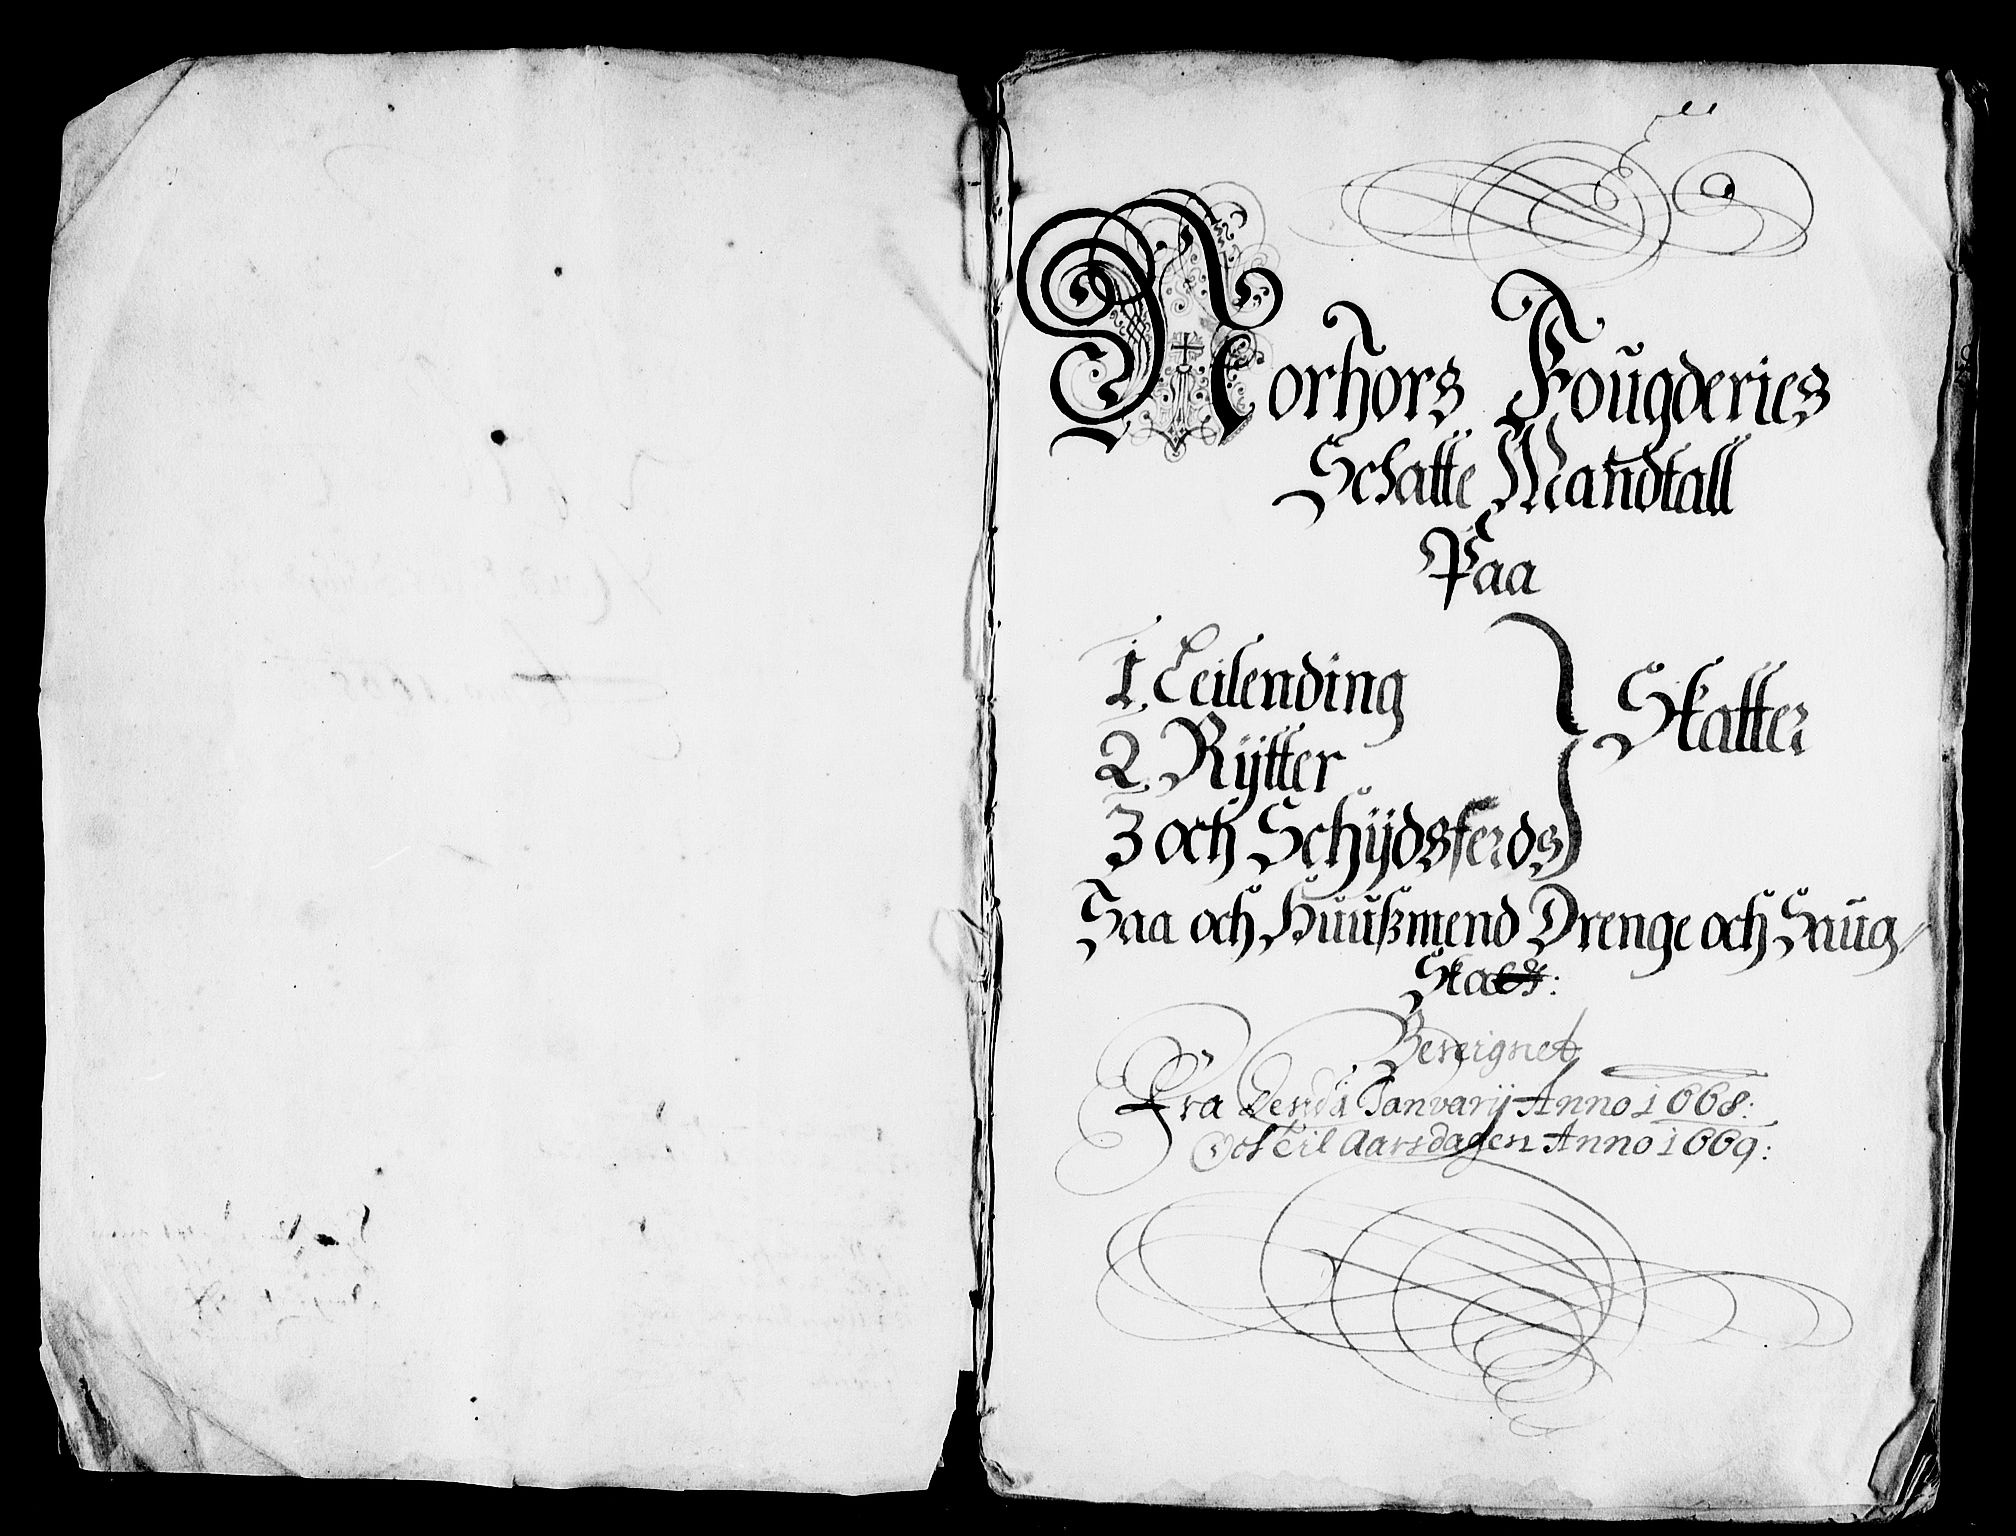 Norhors Fougderies
Schatte Mandtall
Paa
1. Leilending
2. Rÿtter
3 och Schÿdsferds
Skatter
Saa och Huußmend Drenge och Saug
Bereignet
Fra Dend 1 Janvarij Anno 1668:
Och til Aarsdagen Anno 1669: